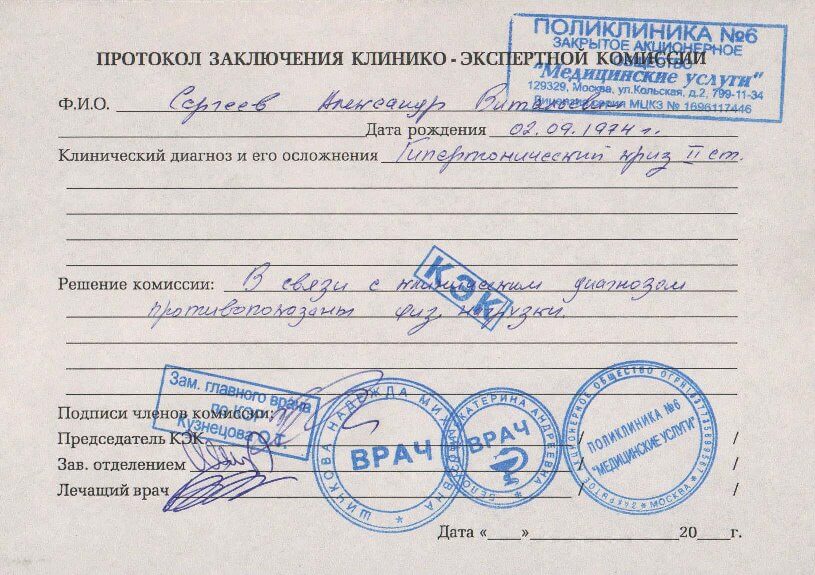 ПОЛИКЛИНИКА №6
ЗАКРЫТОЕ АКЦИОНЕРНОЕ
ОБЩЕСТВО
"Медицинские услуги"
129329, Москва, ул.Кольская, д.2, 799-11-34
Лицензия серия МЦКЗ № 1696117446
ПРОТОКОЛ ЗАКЛЮЧЕНИЯ КЛИНИКО - ЭКСПЕРТНОЙ КОМИССИИ
Ф.И.О. Сергеев Александр Витальевич
Дата рождения 02.09.1974 г.
Клинический диагноз и его осложнения Гипертонический криз II ст.
КЭК
Решение комиссии: В связи с клиническим диагнозом
противопоказаны физ. нагрузки.
Зам. главного врача
по КЭР
Кузнецова О.Г.
Подписи членов комиссии:
Председатель КЭК / /
Зав. отделением / /
Лечащий врач / /
ШИЧКОВА НАДЕЖДА МИХАЙЛОВНА
ВРАЧ
ЕКАТЕРИНА АНДРЕЕВНА
ВРАЧ
ЗАКРЫТОЕ АКЦИОНЕРНОЕ ОБЩЕСТВО
ПОЛИКЛИНИКА №6
"МЕДИЦИНСКИЕ УСЛУГИ"
МОСКВА
Дата «__»__________20__г.